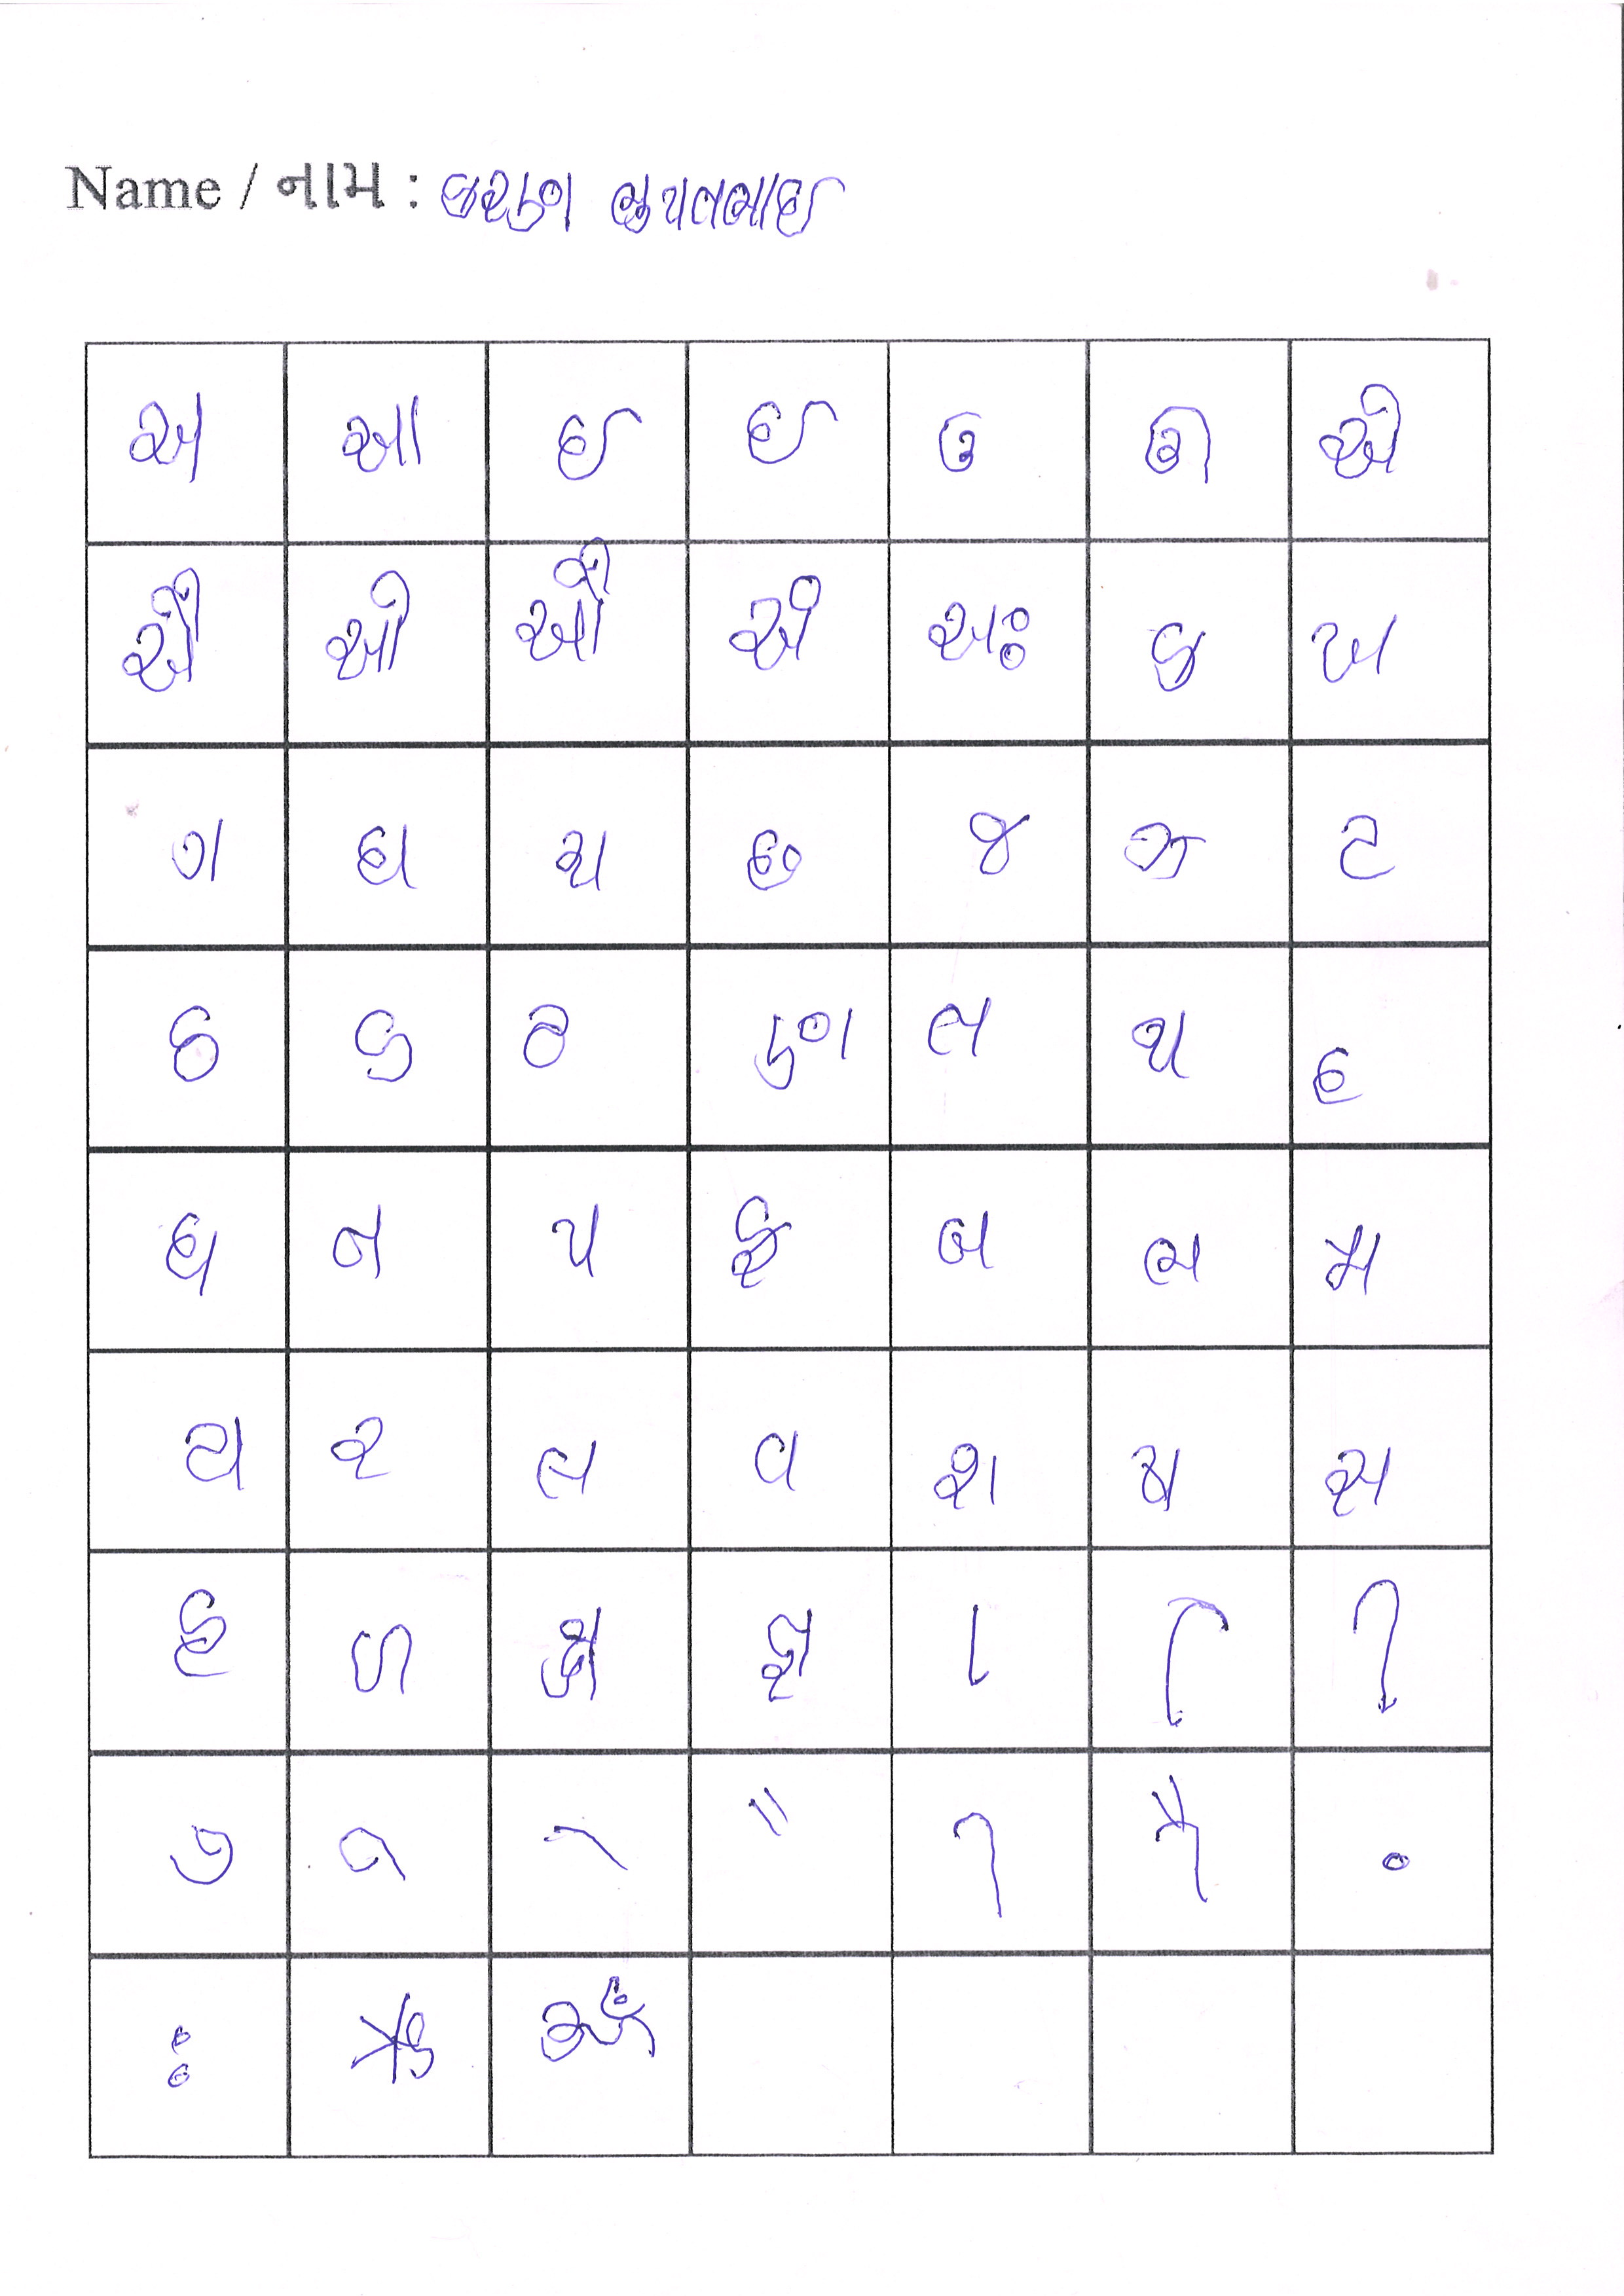 Name / નામ : કરણ ભુપતભાઈ
અ આ ઇ ઈ ઉ ઊ એ
ઐ ઓ ઔ અં અઃ ક ખ
ગ ઘ ચ છ જ ઝ ટ
ઠ ડ ઢ ણ ત થ દ
ધ ન પ ફ બ ભ મ
ય ર લ વ શ ષ સ
હ ળ ક્ષ જ્ઞ ા િ ી
ુ ૂ ે ૈ ો ૌ ં
ઃ ઋ ૐ